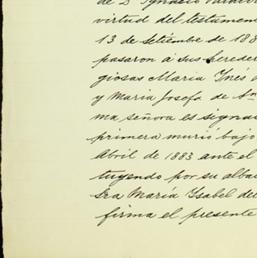 de Dn Ignacio
virtud del testamen
13 de Setiembre de 18
pasaron a sus hereder
giosas Maria Inés
y Maria Josefa de
ma señora es signa
primera murió bajo
Abril de 1883 ante el
tuyendo por su alba
Sra María Isabel de
firma el presente